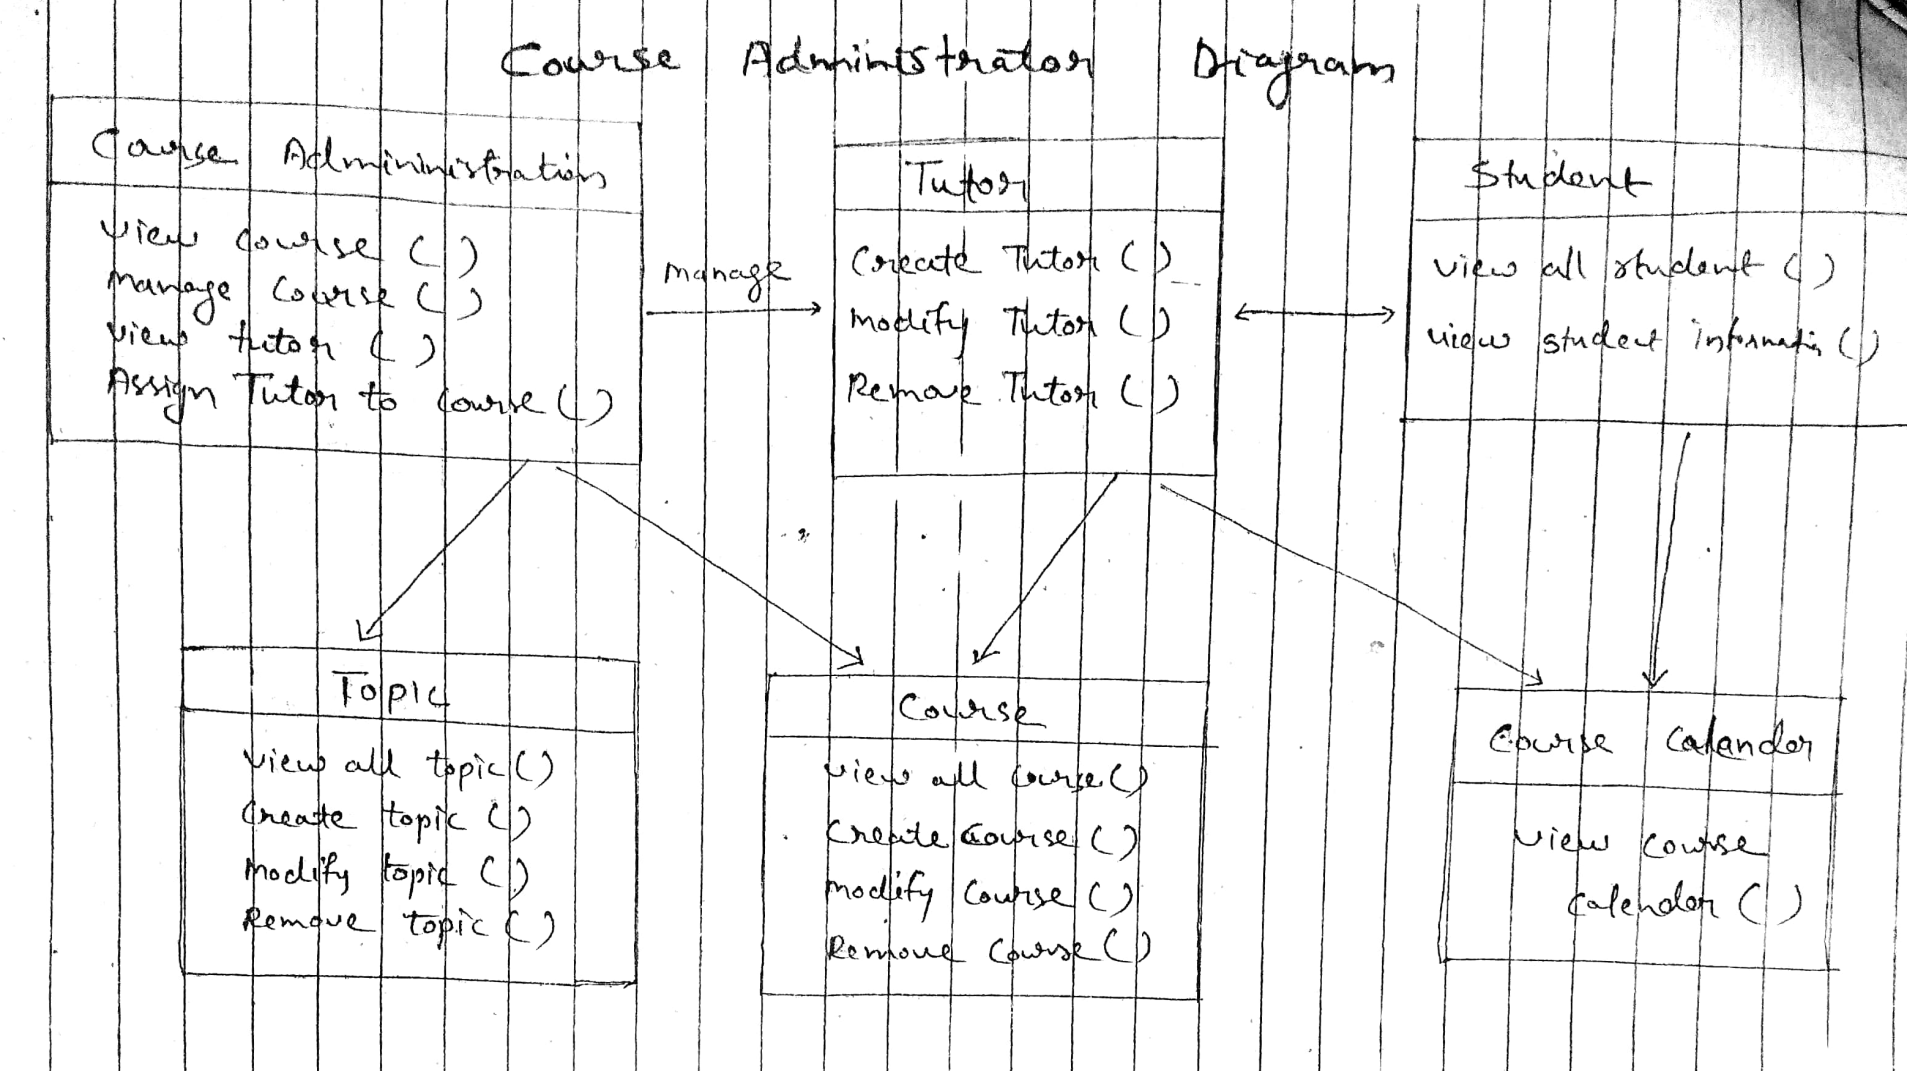 Course Administrator Diagram
Course Admininistration
view course ( )
Manage Course ( )
view tutor ( )
Assign Tutor to course ( )
manage
Tutor
Create Tutor ( )
Modify Tutor ( )
Remove Tutor ( )
Student
view all student ( )
view student informatin ( )
Topic
view all topic ( )
Create topic ( )
Modify topic ( )
Remove topic ( )
Course
view all Course ( )
Create Course ( )
Modify Course ( )
Remove Course ( )
Course Calander
view course
calendar ( )